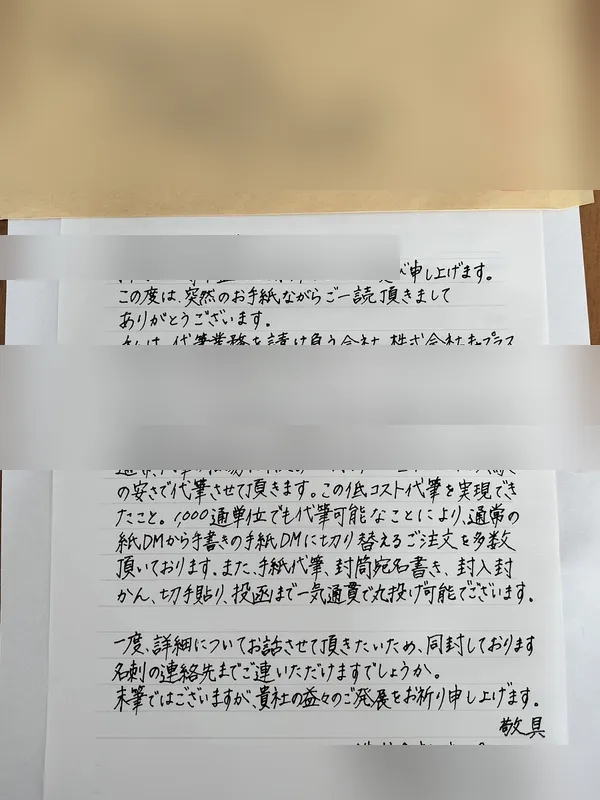 び申し上げます。
この度は、突然のお手紙ながらご一読頂きまして
ありがとうございます。
私は、代筆業務を請け負う会社、株式会社
の安さで代筆させて頂きます。この低コスト代筆を実現でき
たこと。1,000通単位でも代筆可能なことにより、通常の
紙DMから手書きの手紙DMに切り替えるご注文を多数
頂いております。また、手紙代筆、封筒宛名書き、封入封
かん、切手貼り、投函まで一気通貫で丸投げ可能でございます。
一度、詳細についてお話させて頂きたいため、同封しております
名刺の連絡先までご連いただけますでしょうか。
末筆ではございますが、貴社の益々のご発展をお祈り申し上げます。
敬具